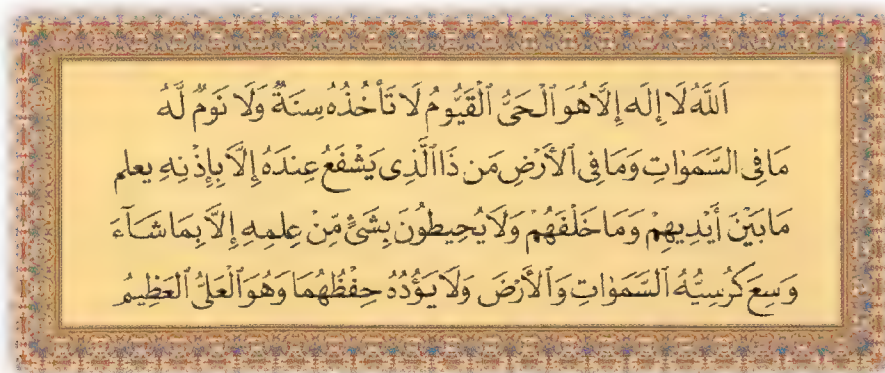 اَللَّهُ لَا إِلَٰهَ إِلَّا هُوَ ٱلْحَىُّ ٱلْقَيُّومُ لَا تَأْخُذُهُ سِنَةٌ وَلَا نَوْمٌ لَّهُ
مَا فِى السَّمَوَٰتِ وَمَا فِى ٱلْأَرْضِ مَن ذَا الَّذِى يَشْفَعُ عِندَهُ إِلَّا بِإِذْنِهِ يعلم
مَا بَيْنَ أَيْدِيهِمْ وَمَا خَلْفَهُمْ وَلَا يُحِيطُونَ بِشَىْءٍ مِّنْ عِلمِهِ إِلَّا بِمَا شَآءَ
وَسِعَ كُرْسِيُّهُ ٱلسَّمَوَٰتِ وَٱلْأَرْضَ وَلَا يَؤُدُهُ حِفْظُهُمَا وَهُوَ ٱلْعَلِىُّ ٱلْعَظِيمُ